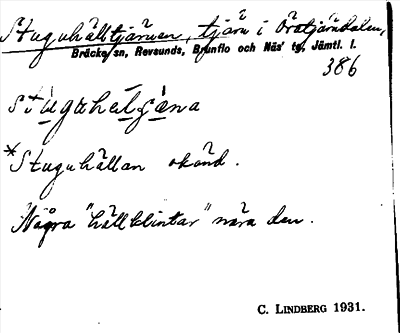 Stuguhälltjärnen, tjärn i Öratjärndalen,
Bräcke sn, Revsunds, Brunflo och Näs' tg, Jämtl. l.
386
*Stuguhällan okänd.
Några "hällklintar" nära den.
C. LINDBERG 1931.